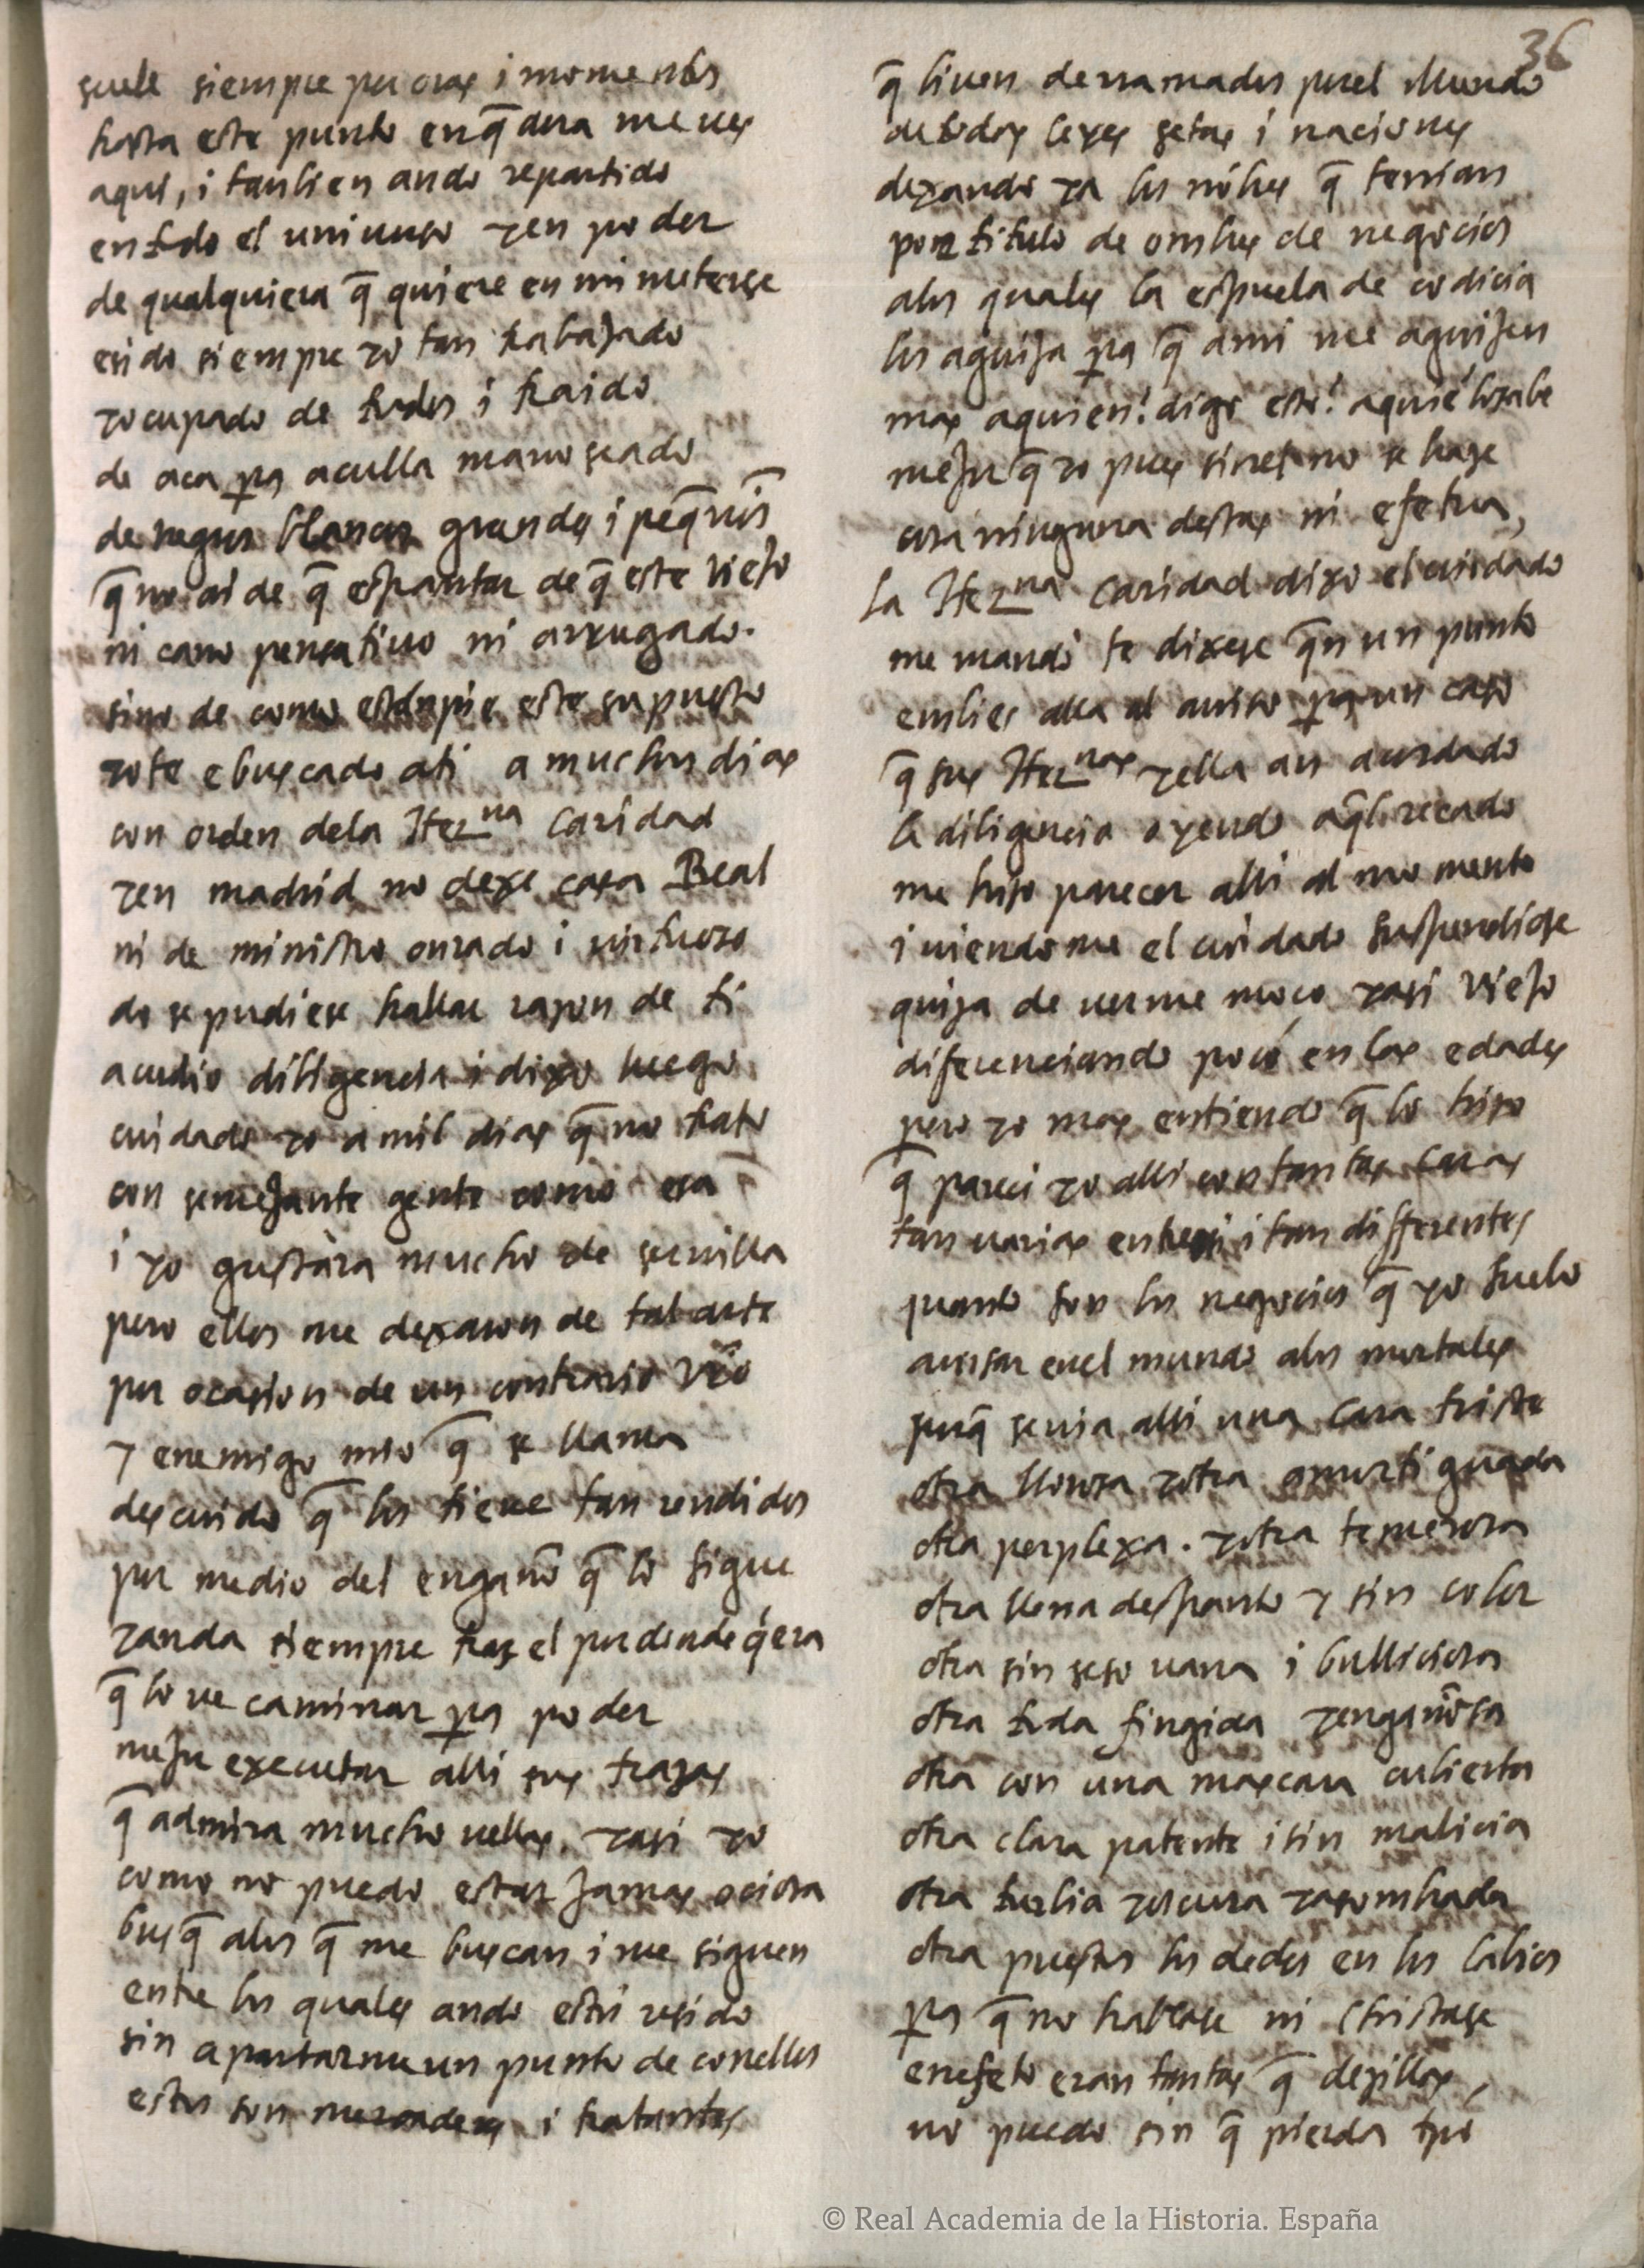 36
suele siempre por oras i momentos
hasta este punto en q̃ aora me ves
aqui, i tanbien ando repartido
en todo el universo y en poder
de qualquiera q̃ quiere en mi meterse
e sido siempre yo tan trabajado
y ocupado de todos i traido
de aca pa aculla manoseado
de negros blancos grandes i peq̃nos
q̃ no ai de q̃ espantar de q̃ este viejo
ni cano pensativo ni arrugado.
sino de como estoi en pie este supuesto
yo te e buscado a ti a muchos dias
con orden de la Herna Caridad
y en madrid no dexe casa Real
ni de ministro onrado i virtuoso
do se pudiese hallar razon de ti
acudio diligencia i dixo luego
cuidado yo a mil dias q̃ no trato
con semejante gente como esa
i yo gustàra mucho de servilla
pero ellos me dexaron de tal arte
por ocasion de un contrario vr̃o
y enemigo mio q̃ se llama
descuido q̃ los tiene tan rendidos
por medio del engaño q̃ lo sigue
y anda siempre tras el por donde q̃era
q̃ lo ve caminar pa poder
mejor executar alli sus trazas
q̃ admira mucho vellas, y asi yo
como no puedo estar jamas ociosa
busq̃ a los q̃ me buscan i me siguen
entre los quales ando estoi resido
sin apartarme un punto de con ellos
estos son mercaderes i tratantes
q̃ biven derramados por el Mundo
de todas leyes setas i naciones
dexando ya los nõbres q̃ tenian
por titulo de onbres de negocios
a los quales la espuela de codicia
los aguija pa q̃ a mi me aguijen
mas a quien! digo esto! a quiẽ lo sabe
mejor q̃ yo pues sin el no se haze
cosa ninguna destas ni efetua,
la Herna Caridad dixo el cuidado
me mandò te dixese q̃n un punto
enbies alla al aviso pa un caso
q̃ sus Hernas y ella an acordado
la diligencia oyendo aq̃l recado
me hizo parecer alli al momento
i viendome el cuidado suspendiose
quiza de verme moço y asi viejo
diferenciando poco en las edades
pero yo mas entiendo q̃ lo hizo
q̃ pareci yo alli con tantas caras
tan varias entre si i tan differentes
quanto son los negocios q̃ yo suelo
avisar en el mundo a los mortales
porq̃ se via alli una cara triste
otra llorosa y otra amortiguada
otra perplexa. y otra temerosa
otra llena despanto y sin color
otra sin seso vana i bulliciosa
otra toda fingida y engañosa
otra con una mascara cubierta
otra clara patente i sin malicia
otra turbia y oscura y asombrada
otra puestos los dedos en los labios
pa q̃ no hablase ni chistase
en efeto eran tantas q̃ dezillas,
no puedo sin q̃ pierda tpo
© Real Academia de la Historia. España